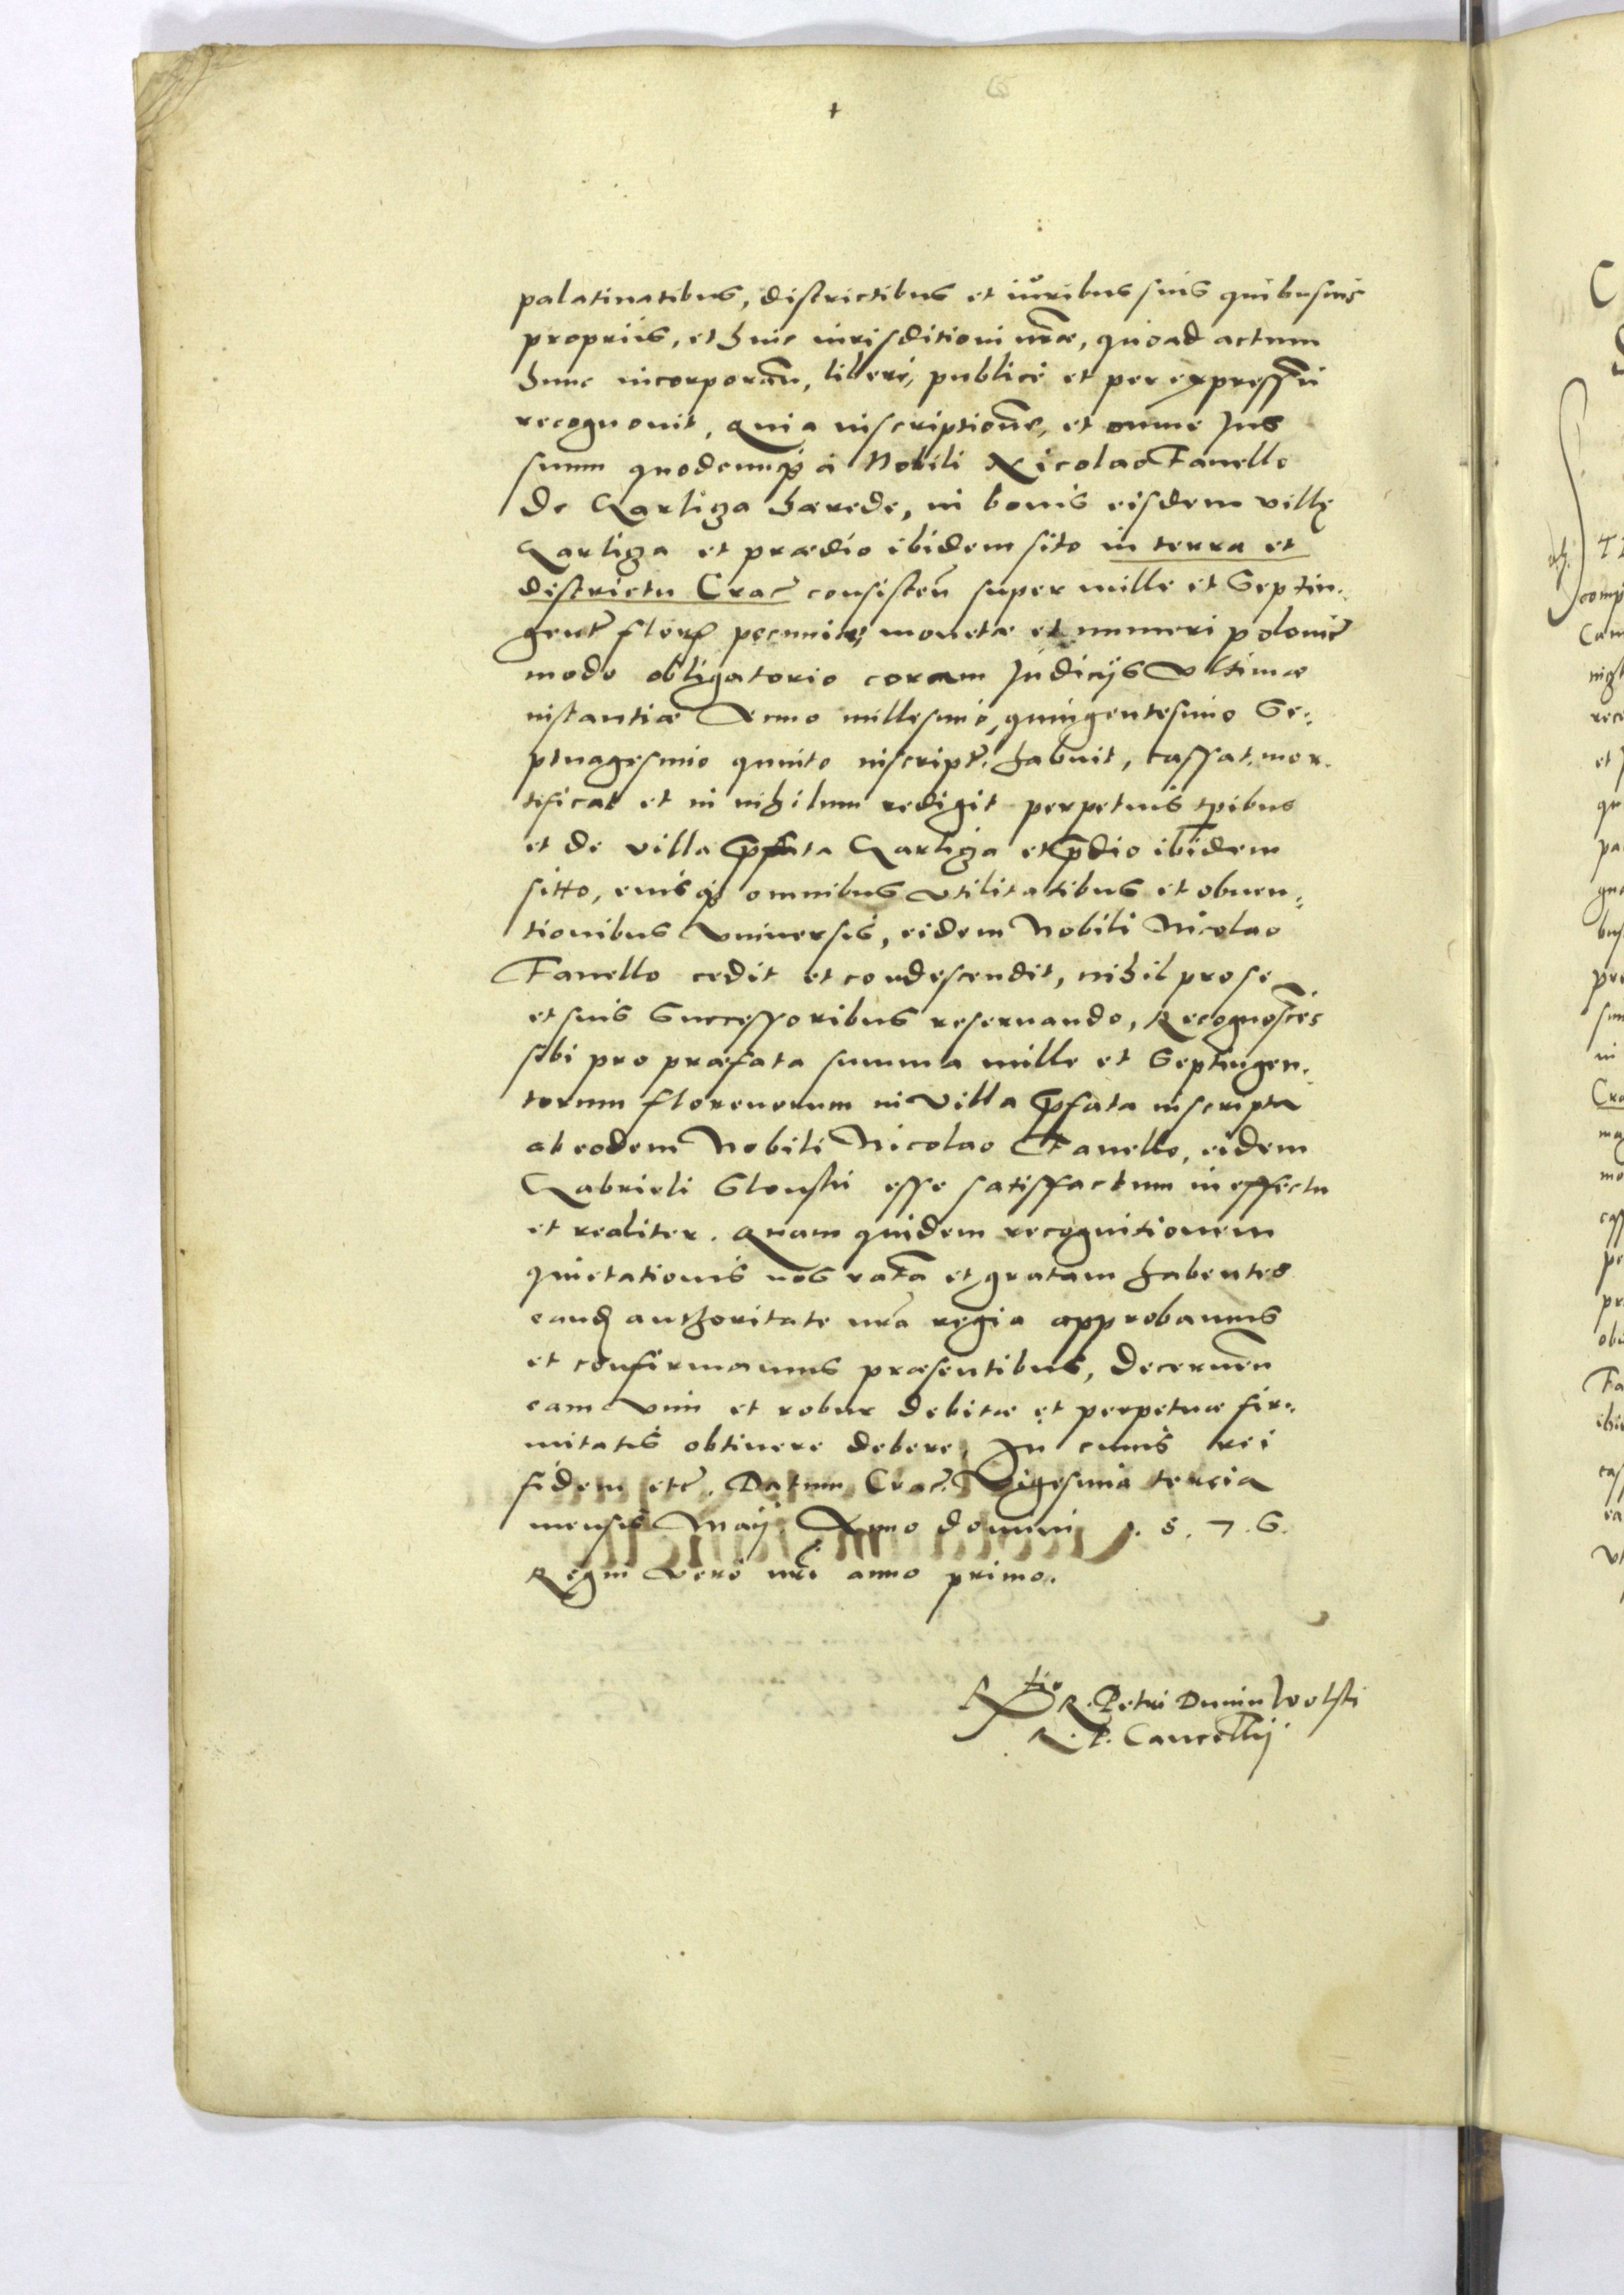 palatinatibus, districtibus et iuribus suis quibusuis
proprijs, et huic iurisditioni nr̃ae, quoad actum
hunc incorporan̄, liberè, publicè et per expressū
recognouit, quia inscriptionē, et omne Jus
suum quodcunqꝫ à Nobili Nicolao Fanello
de Garliza hærede, in bonis eisdem villę
Garliza et prædio ibidem sito in terra et
districtu Crac̃ consisteñ super mille et Septin:
gent̃ florꝝ pecuniæ, monetæ et numeri polonic̃
modo obligatorio coram Judicijs Vltimæ
instantiæ Anno millesimo, quingentesimo Se:
ptuagesimo quinto inscript̃. habuit, cassat. mor:
tificat et in nihilum redigit perpetuis tp̃ibus
et de villa p̃fata Garliza et p̃dio ibidem
sitto, eiusqꝫ omnibus vtilitatibus et obuen:
tionibus Vniuersis, eidem Nobili Nicolao
Fanello cedit et condescendit, nihil pro se
et suis Successoribus reseruando, Recognosceñs
sibi pro præfata summa mille et Septingen:
torum florenorum in Villa p̃fata inscripta
ab eodem Nobili Nicolao Fanello, eidem
Gabrieli Slonski esse satisfactum in effectu
et realiter. Quam quidem recognitionem
quietationis nos ratã et gratam habentes
eandꝫ authoritate nr̃a regia approbamus
et confirmamus præsentibus, Decernen̄
eam Vim et robur debitæ et perpetuæ fir:
mitatis obtinere debere. In cuius rei
fidem etc̃. Datum Crac̃. Vigesima tercia
mensis Maij. Anno domini 1.5.7.6.
Regni Vero nr̃i anno primo.
R<sup>tio</sup> R. Petri Dunin Wolski
R. P. Cancellij